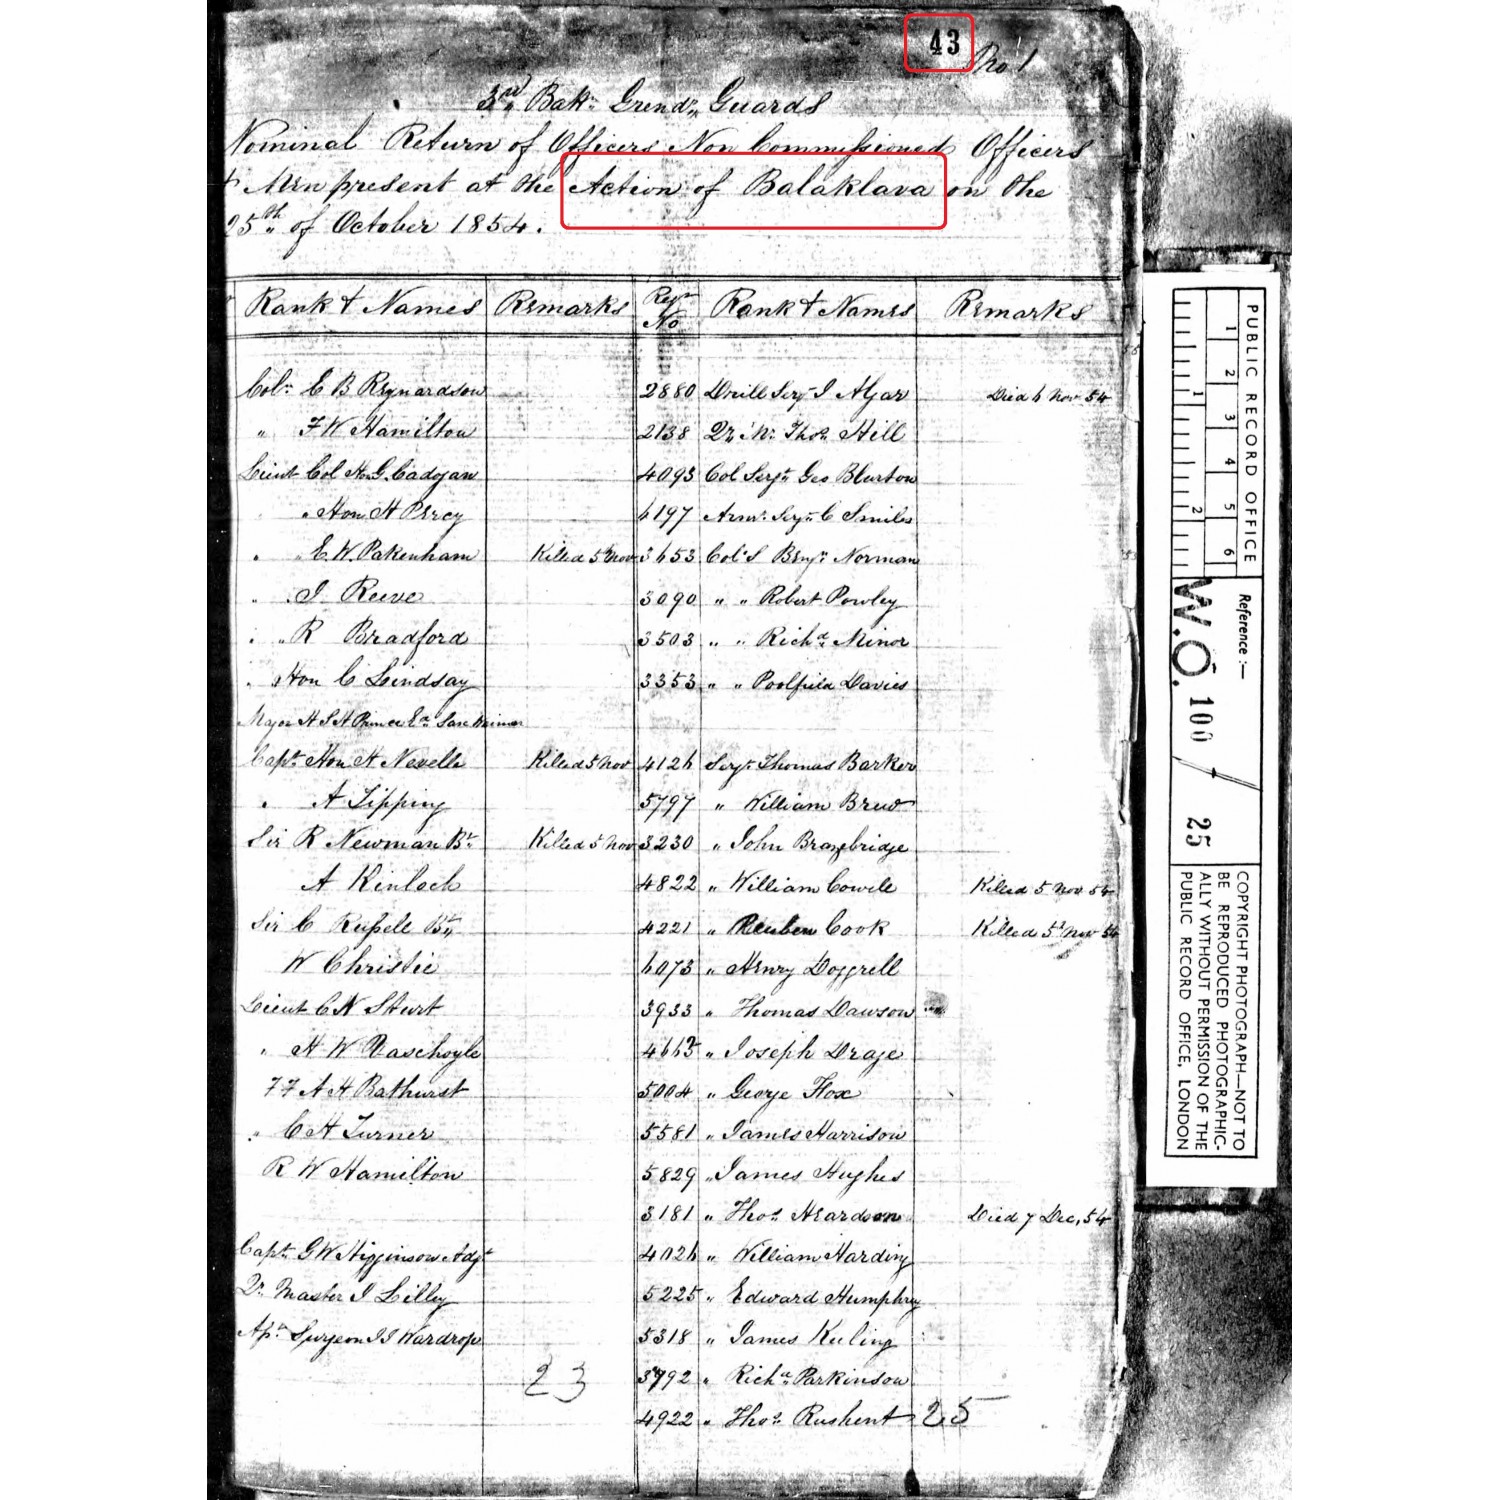 43
No 1
3rd Batn Grendr Guards
Nominal Return of Officers Non Commissioned Officers
+ Men present at the Action of Balaklava on the
25th of October 1854.
Rank + Names Remarks Regtl No Rank + Names Remarks
Coln E B Reynardson 2880 Drill Sergt J Algar Died 6 Nov 54
" F W Hamilton 2138 Qr Mr Thos Hill
Lieut Col Hn G. Cadogan 4093 Col Sergt Geo Blurton
" Hon H Percy 6197 Armr Sergt C Smiles
" " E. W. Pakenham Killed 5th Nov 3653 Col S Benjn Norman
" J Reeve 3090 " " Robert Powley
" " R Bradford 3503 " " Richd Minor
" Hon C Lindsay 3353 " " Poolfield Davies
Major H S H Prince Ed Saxe Weimar
Capt Hon H Nevelle Killed 5 Nov 4126 Sergt Thomas Barker
" A Tipping 5797 " William Brew
Sir R Newman Bt Killed 5 Nov 3230 " John Brambridge
A Kinloch 4822 " William Cowell Killed 5 Nov 54
Sir C Russell Bt 4221 " Reuben Cook Killed 5th Nov 54
W Christie 6073 " Henry Doggrell
Lieut C N Sturt 3933 " Thomas Dawson
" H W Verschoyle 4663 " Joseph Drage
F F A H Bathurst 5004 " George Fox
" C H Turner 5581 " James Harrison
R W Hamilton 5829 " James Hughes
3181 " Thos Heardson Died 7 Dec, 54
Capt G W Higginson Adjt 4026 " William Harding
Qr Master J Lilley 5225 " Edward Humphrey
Asst Surgeon J J Wardrop 5318 " James Keeling
23 3792 " Richd Parkinson
4922 " Thos Rushent 25
PUBLIC RECORD OFFICE
1 2 3 4 5 6
1 2
Reference :—
W.O. 100 / 25
COPYRIGHT PHOTOGRAPH—NOT TO
BE REPRODUCED PHOTOGRAPHIC-
ALLY WITHOUT PERMISSION OF THE
PUBLIC RECORD OFFICE, LONDON